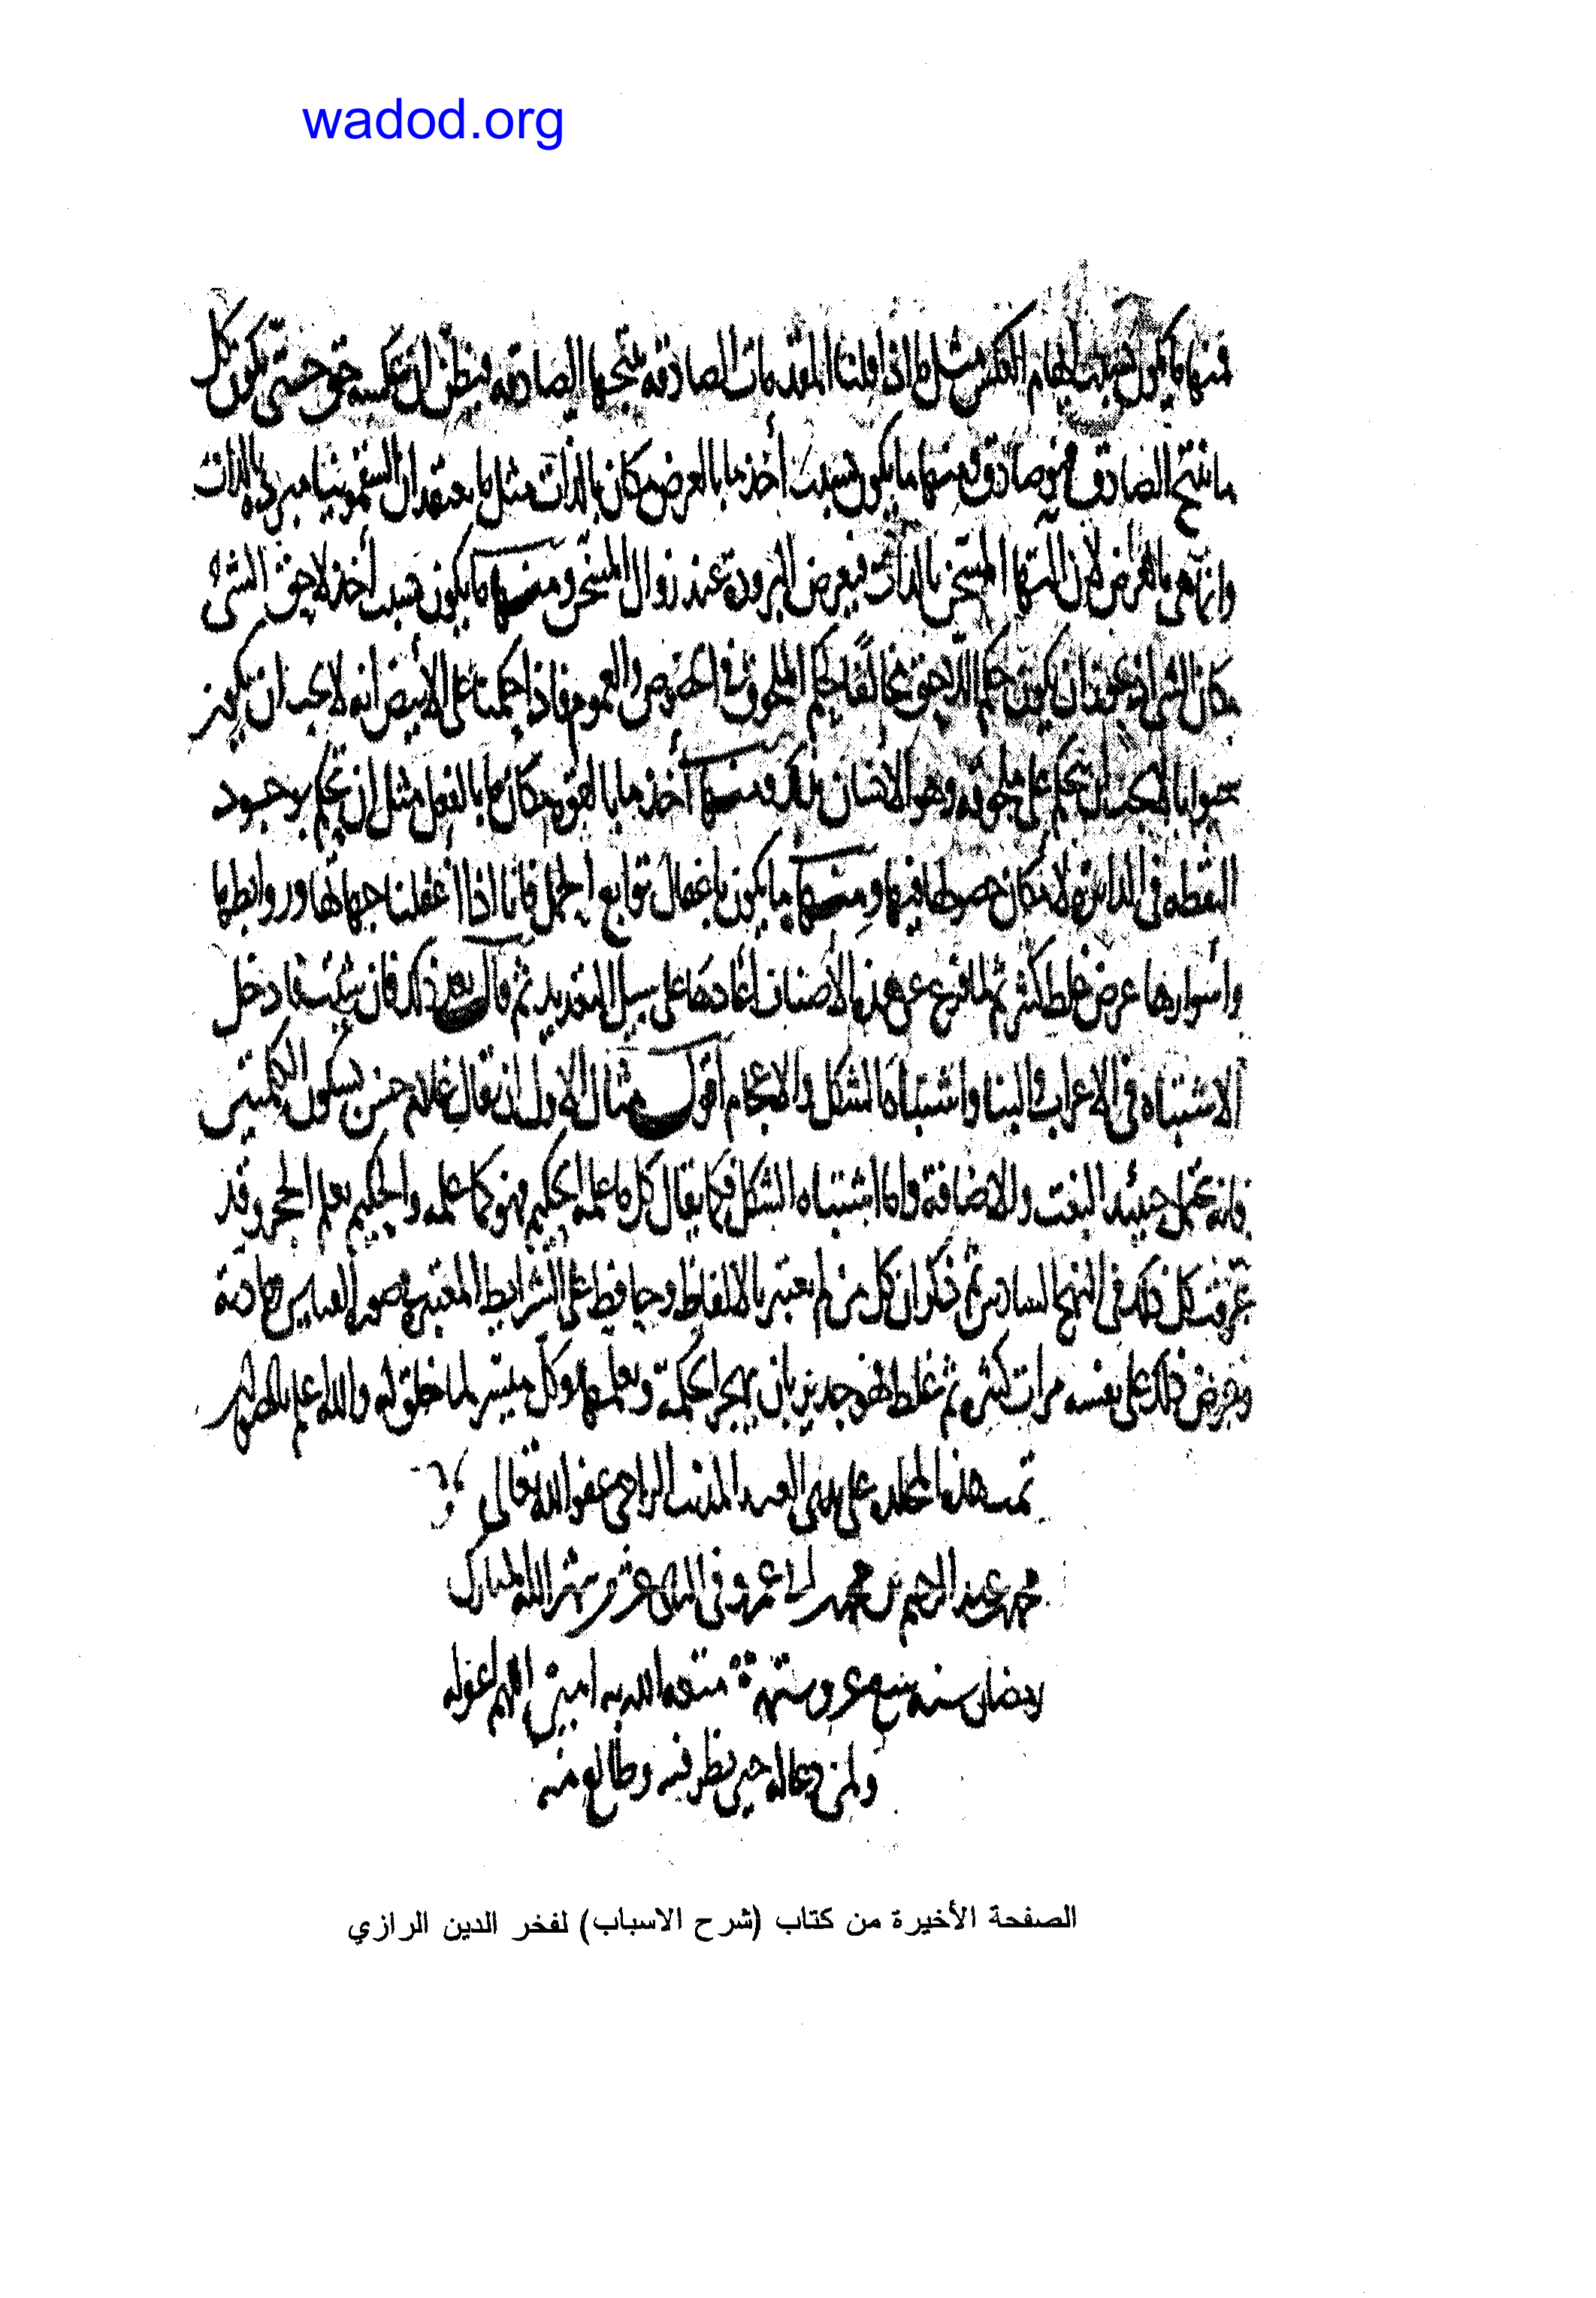 wadod.org
فمنها ما يكون بسبب ايهام العكس مثل ما اذا قلنا المقدمات الصادقه نتيجها الصادقه فيظن ان عكسه حق حتى يكون كل
ما ينتج الصادق فهو صادق ومنها ما يكون بسبب أخذ ما بالعرض مكان ما بالذات مثل ما يعتقد ان السقمونيا مبرده بالذات
وانها هى بالعرض لان المسخن بالذات فيعرض البروده عند زوال المسخن ومنها ما يكون بسبب أخذ لاحق الشئ
مكان الشئ اذ يجوز ان يكون حكم اللاحق مخالفًا لحكم الملحوق فى الخصوص والعموم فاذا حكمنا على الأبيض انه لا يجب ان يكون
حيوانا لا يجب ان يحكم على ملحوقه وهو الانسان بذلك ومنها أخذ ما بالقوه مكان ما بالفعل مثل ان يحكم بوجود
النقطه فى الدائره لامكان حصولها فيها ومنها ما يكون باغفال توابع الحمل فانا اذا اغفلنا جهاتها وروابطها
وأسوارها عرض غلط كثير ثم لما فرغ عن هذه الأصناف أعادها على سبيل التعديد ثم قال بعد ذلك فان شئت فادخل
الاشتباه فى الاعراب والبنا واشتباه الشكل والاعجام أقول مثال الاول ان يقال غلام حسن بسكون الكلمتين
فانه يحتمل حينئذ النعت والاضافة واما اشتباه الشكل فكما يقال كل ما علمه الحكيم فهو كما علمه والحكيم يعلم الحجر وقد
عرفت كل ذلك فى النهج السادس ثم ذكر ان كل من لم يعتبر بالالفاظ وحافظ على الشرايط المعتبره صور القياس ومادته
وعرض ذلك على نفسه مرات كثيره ثم غلط فهو جدير بان يهجر الحكمة وتعلمها وكل ميسر لما خلق له والله اعلم بالصواب
تمت هذه المجلده على يدى العبد المذنب الراجى عفو الله تعالى
محمد عبد الرحيم بن محمد عمر وفى شهر الله المبارك
رمضان سنه سبع وستمة متعه الله به امين اللهم اغفر له
ولمن دعا له حين نظر فيه وطالع منه
الصفحة الأخيرة من كتاب (شرح الاسباب) لفخر الدين الرازي